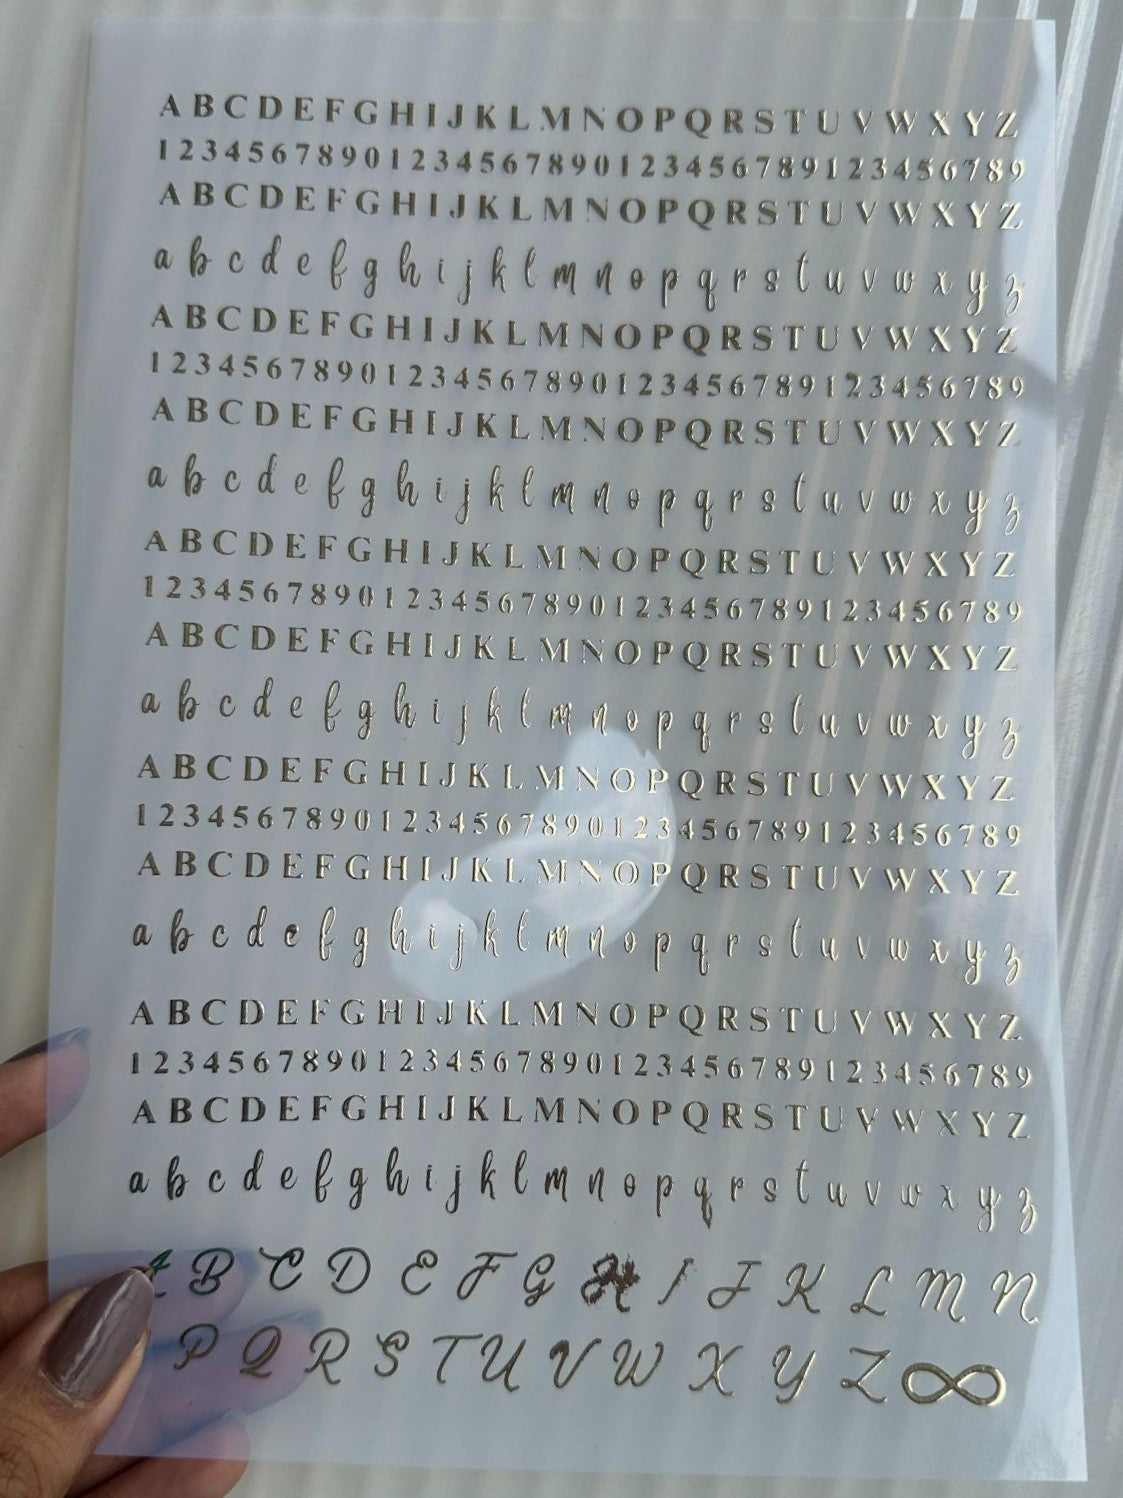 A B C D E F G H I J K L M N O P Q R S T U V W X Y Z
1 2 3 4 5 6 7 8 9 0 1 2 3 4 5 6 7 8 9 0 1 2 3 4 5 6 7 8 9 1 2 3 4 5 6 7 8 9
A B C D E F G H I J K L M N O P Q R S T U V W X Y Z
a b c d e f g h i j k l m n o p q r s t u v w x y z
A B C D E F G H I J K L M N O P Q R S T U V W X Y Z
1 2 3 4 5 6 7 8 9 0 1 2 3 4 5 6 7 8 9 0 1 2 3 4 5 6 7 8 9 1 2 3 4 5 6 7 8 9
A B C D E F G H I J K L M N O P Q R S T U V W X Y Z
a b c d e f g h i j k l m n o p q r s t u v w x y z
A B C D E F G H I J K L M N O P Q R S T U V W X Y Z
1 2 3 4 5 6 7 8 9 0 1 2 3 4 5 6 7 8 9 0 1 2 3 4 5 6 7 8 9 1 2 3 4 5 6 7 8 9
A B C D E F G H I J K L M N O P Q R S T U V W X Y Z
a b c d e f g h i j k l m n o p q r s t u v w x y z
A B C D E F G H I J K L M N O P Q R S T U V W X Y Z
1 2 3 4 5 6 7 8 9 0 1 2 3 4 5 6 7 8 9 0 1 2 3 4 5 6 7 8 9 1 2 3 4 5 6 7 8 9
A B C D E F G H I J K L M N O P Q R S T U V W X Y Z
a b c d e f g h i j k l m n o p q r s t u v w x y z
A B C D E F G H I J K L M N O P Q R S T U V W X Y Z
1 2 3 4 5 6 7 8 9 0 1 2 3 4 5 6 7 8 9 0 1 2 3 4 5 6 7 8 9 1 2 3 4 5 6 7 8 9
A B C D E F G H I J K L M N O P Q R S T U V W X Y Z
a b c d e f g h i j k l m n o p q r s t u v w x y z
A B C D E F G H I J K L M N
P Q R S T U V W X Y Z ∞